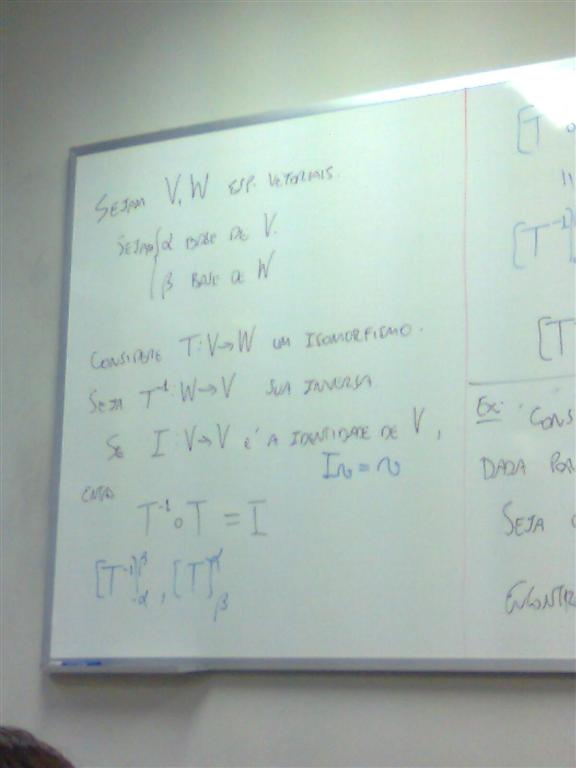 SEJAM V, W ESP. VETORIAIS.
SEJAM { α BASE DE V.
β BASE DE W
CONSIDERE T: V→W UM ISOMORFISMO.
SEJA T⁻¹: W→V SUA INVERSA.
SE I: V→V É A IDENTIDADE DE V,
Iv = v
ENTÃO
T⁻¹∘T = I
[T⁻¹]^β_α, [T]^α_β
[T
[T⁻¹]
[T
Ex: CONS
DADA POR
SEJA
ENCONTR